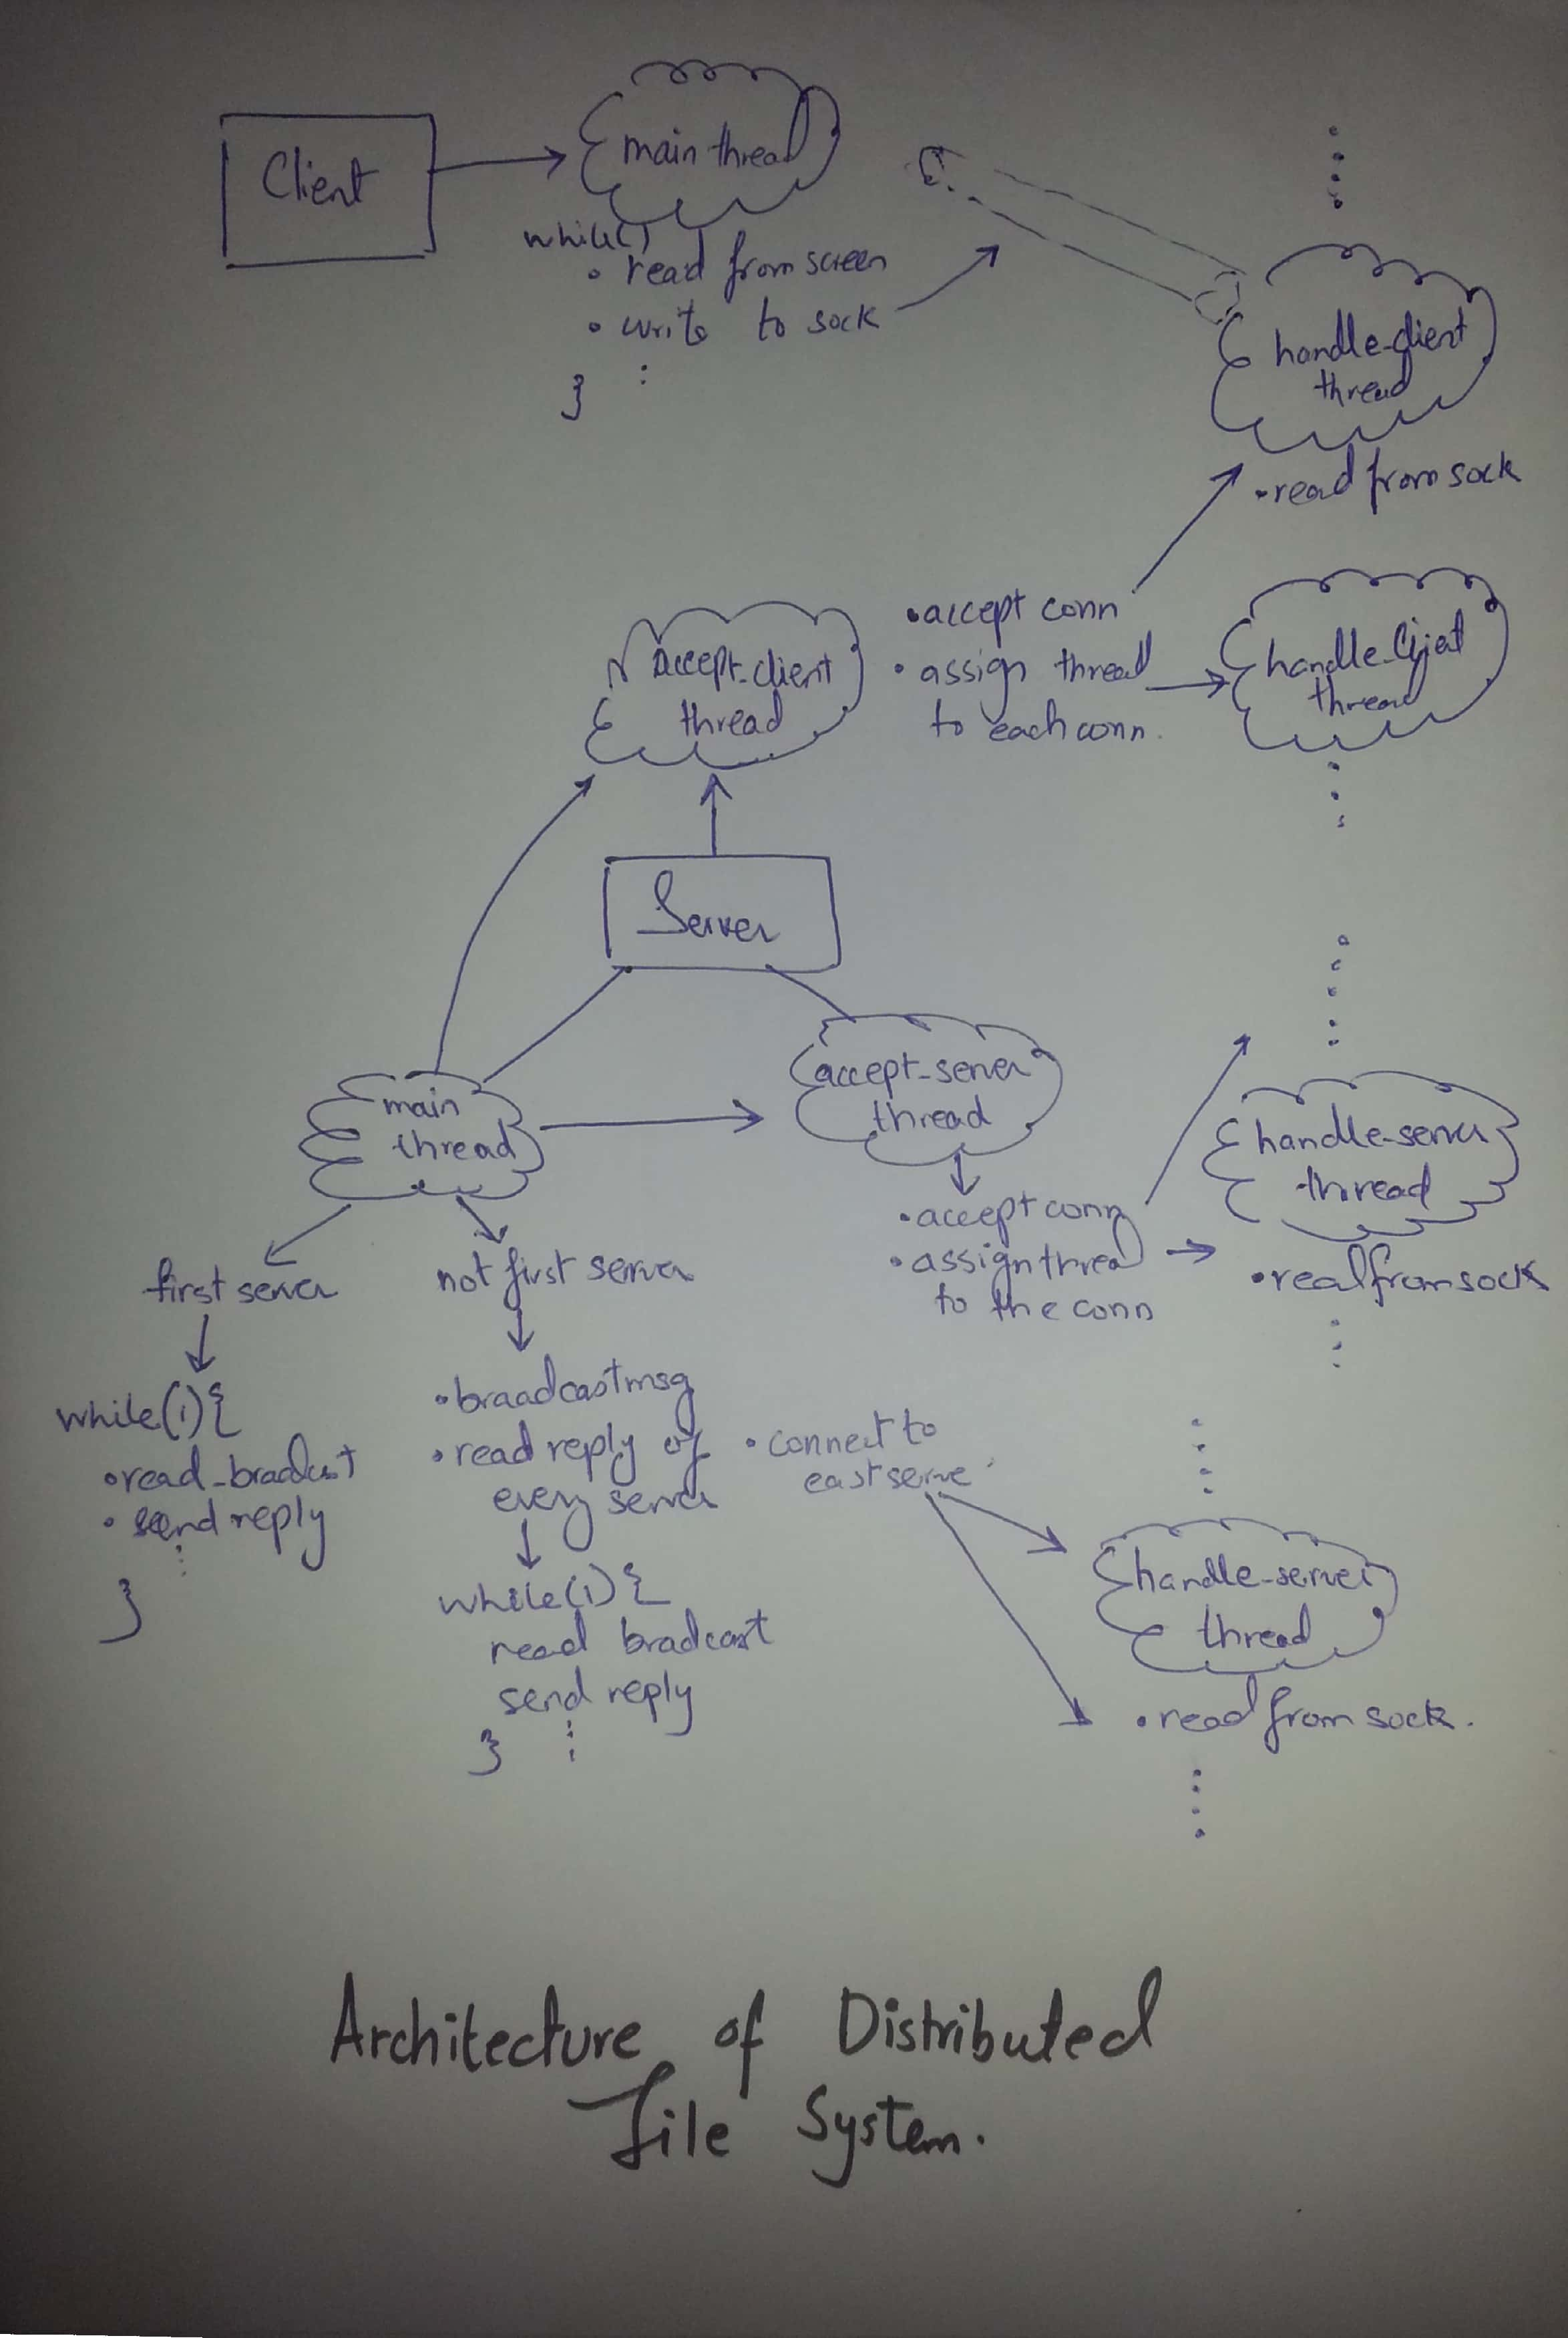 Client
main thread
while()
• read from screen
• write to sock
}
handle-client
thread
• read from sock
accept-client
thread
• accept conn
• assign thread
to each conn.
handle-client
thread
Server
main
thread
accept-server
thread
• accept conn
• assign thread
to the conn
handle-server
thread
• read from sock
first server
while(1){
• read-bradcast
• send reply
}
not first server
• braadcast msg
• read reply of
every server
while(1){
read bradcast
send reply
}
• connect to
east serve
handle-server
thread
• read from sock.
Architecture of Distributed
File System.